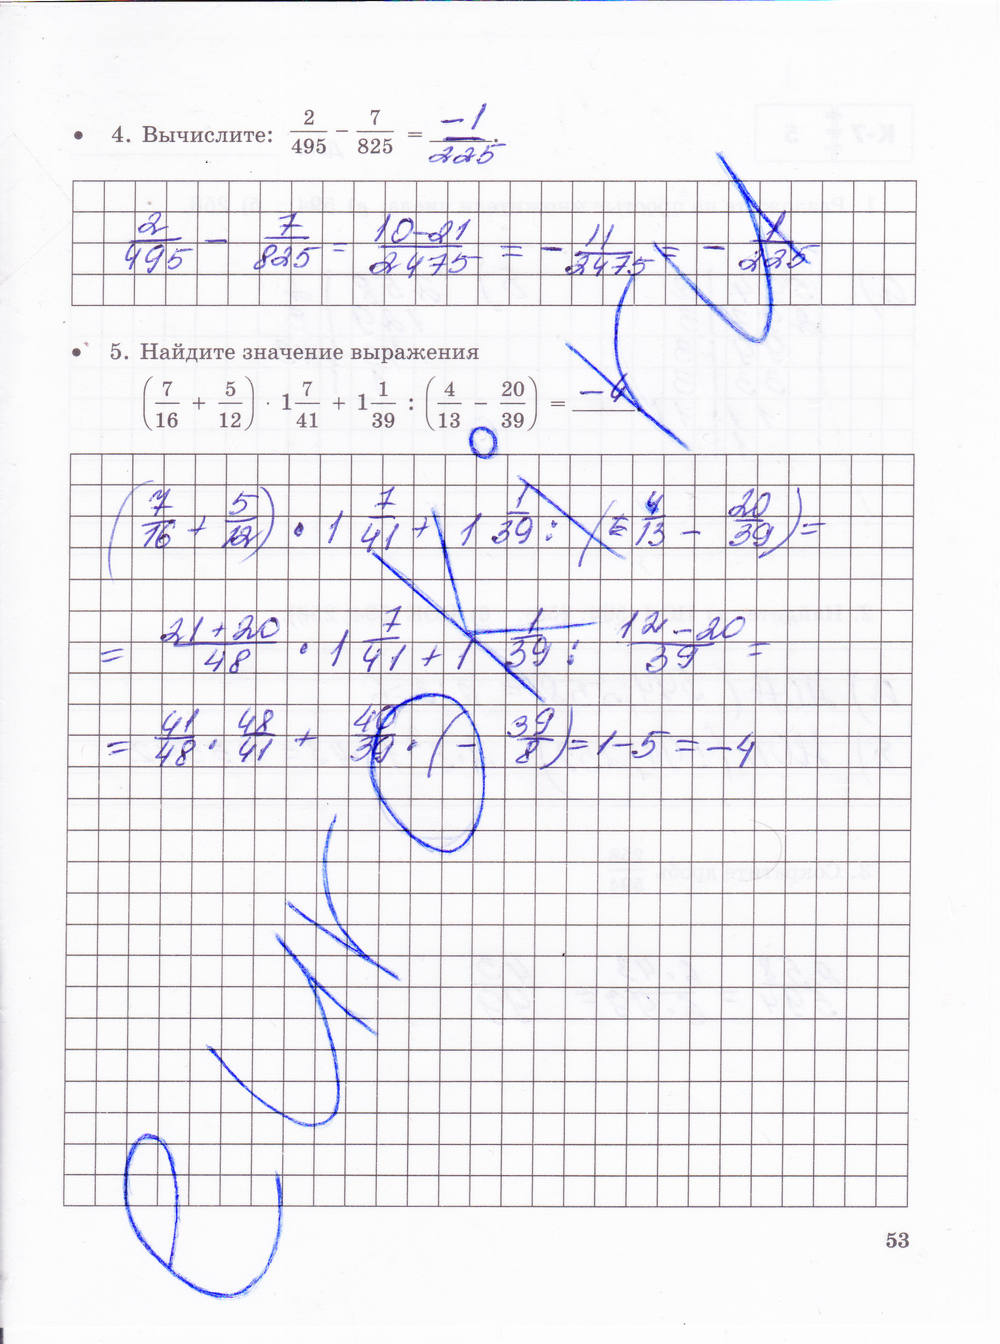 • 4. Вычислите: 2/495 − 7/825 = −1/225.
2/495 − 7/825 = 10−21/2475 = −11/2475 = −1/225
• 5. Найдите значение выражения
(7/16 + 5/12) · 1 7/41 + 1 1/39 : (4/13 − 20/39) = −4
(7/16 + 5/12) · 1 7/41 + 1 1/39 : (4/13 − 20/39) =
= 21+20/48 · 1 7/41 + 1 1/39 : 12−20/39 =
= 41/48 · 48/41 + 40/39 · (−39/8) = 1−5 = −4
53